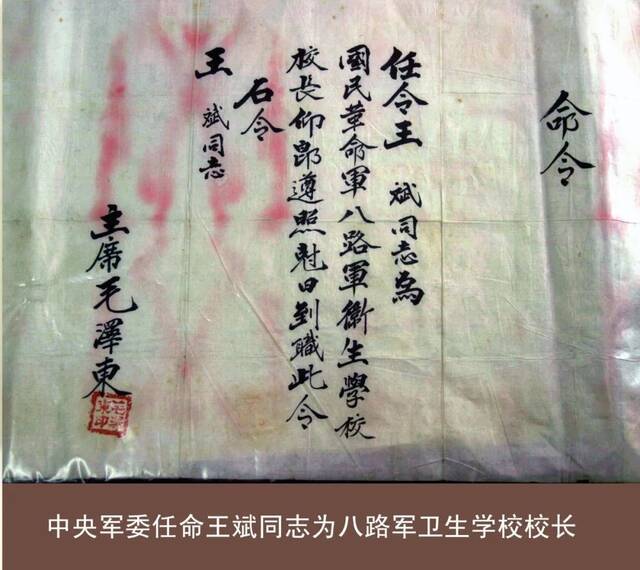 命令
任令王 斌同志為
國民革命軍八路軍衛生學校
校長仰即遵照尅日到職此令
右令
王 斌同志
主席毛澤東
毛澤東印
中央军委任命王斌同志为八路军卫生学校校长